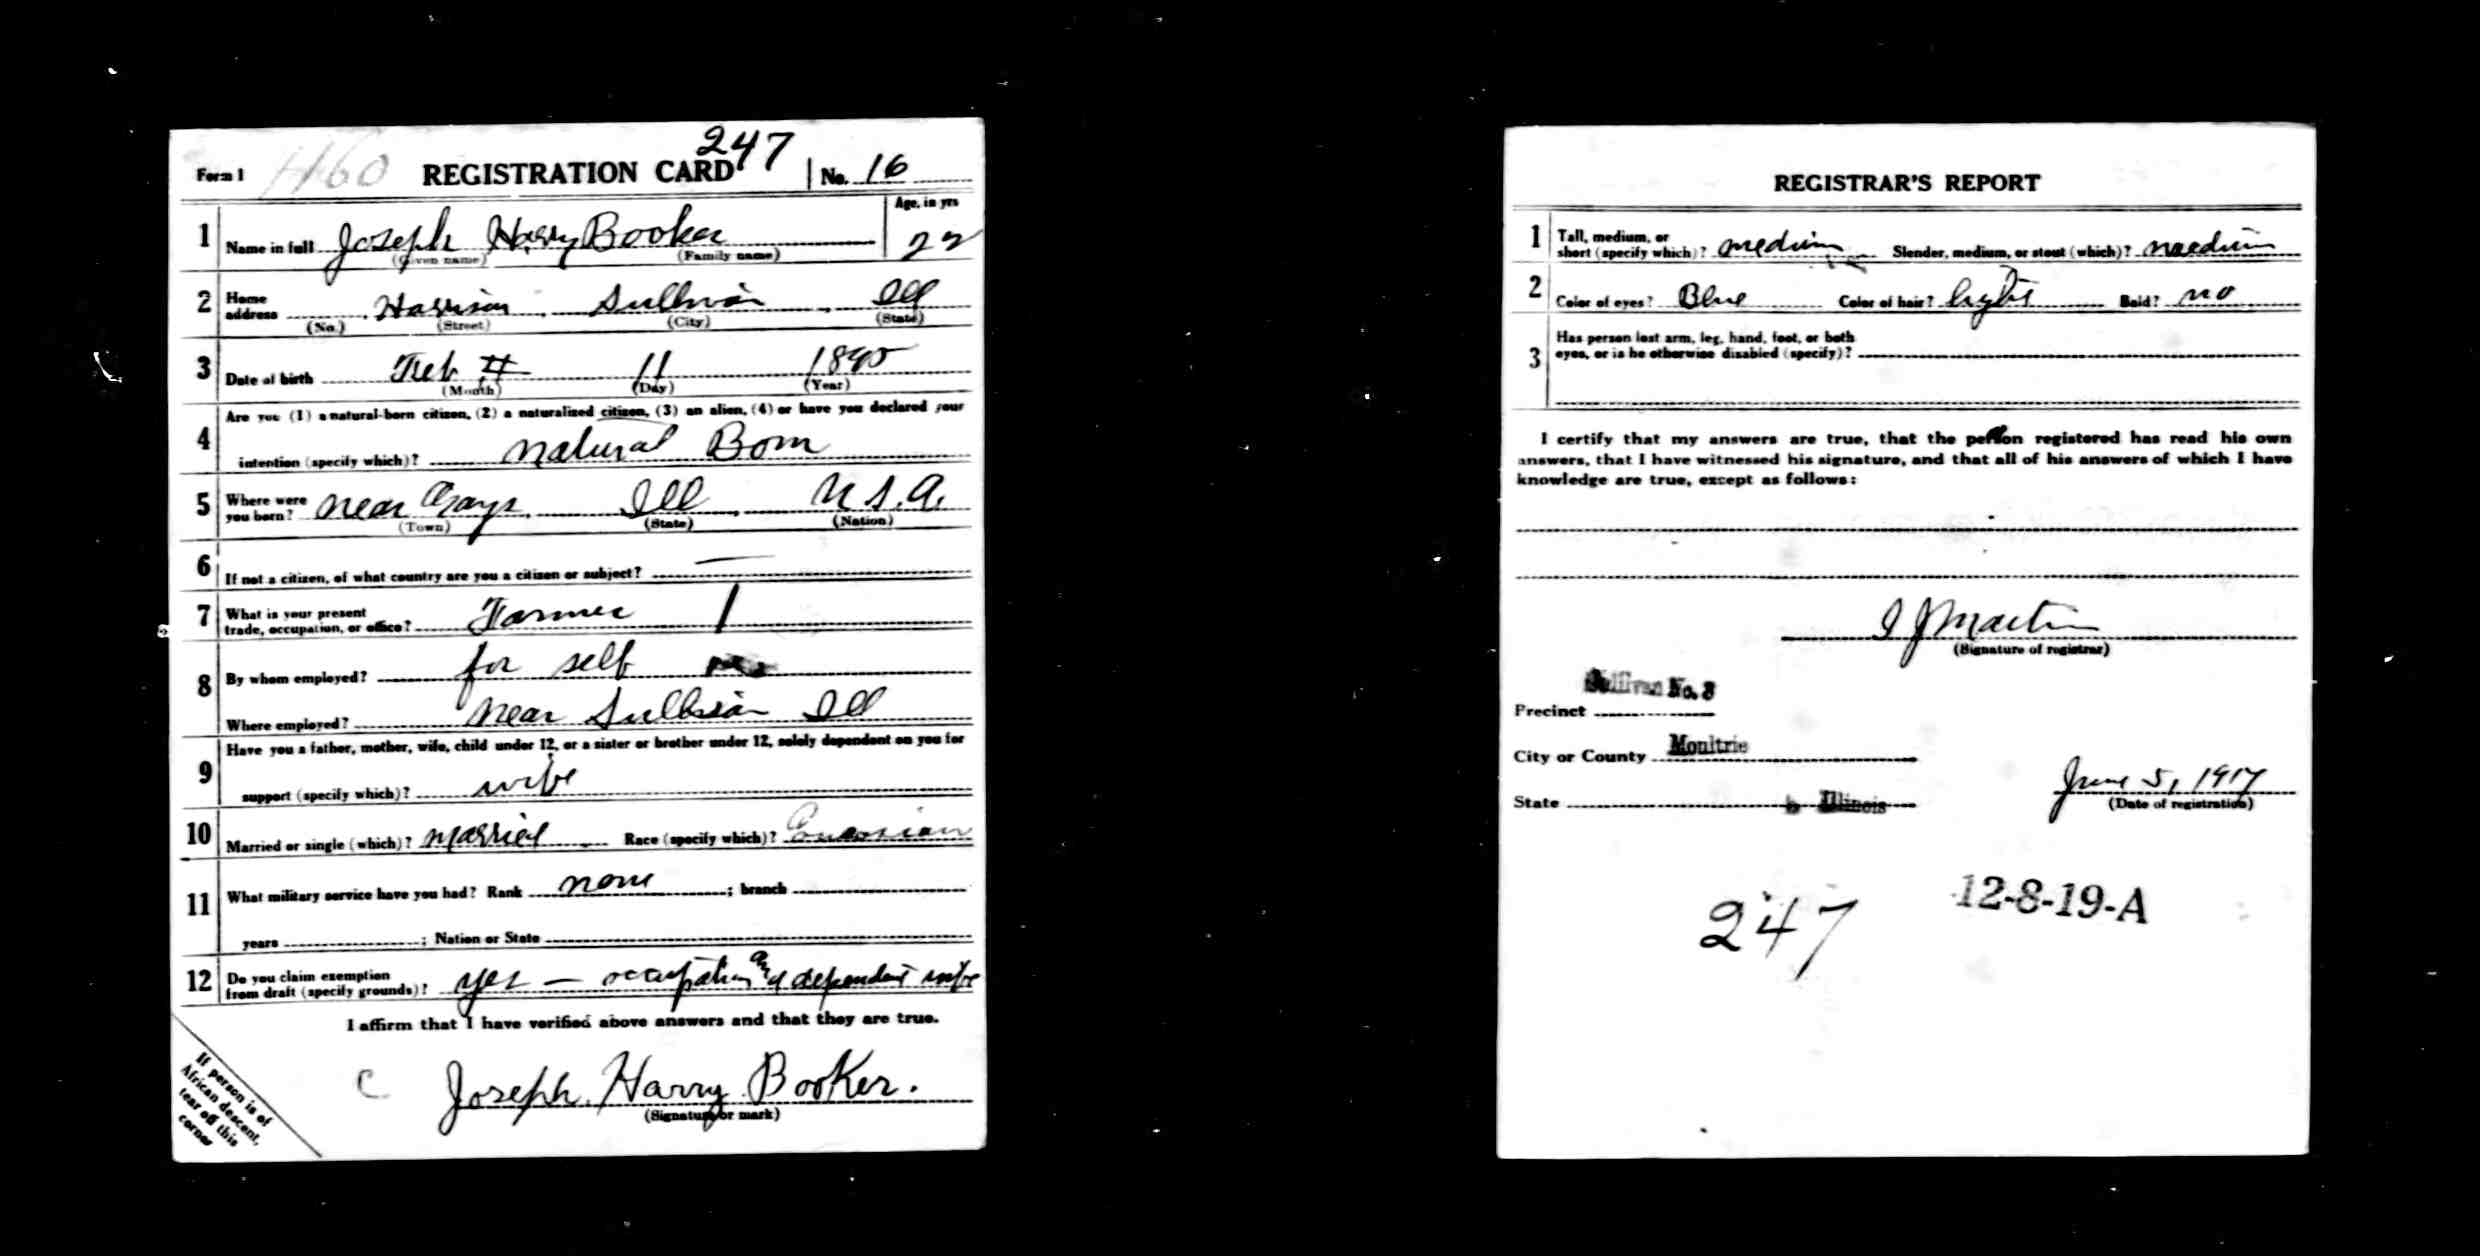 247
Form 1 1160 REGISTRATION CARD No. 16
1 Name in full Joseph Harry Booker Age, in yrs 22
(Given name) (Family name)
2 Home address Harrison, Sullivan, Ill
(No.) (Street) (City) (State)
3 Date of birth Feb 11 1895
(Month) (Day) (Year)
4 Are you (1) a natural-born citizen, (2) a naturalized citizen, (3) an alien, (4) or have you declared your
intention (specify which)? natural Born
5 Where were you born? near Gays, Ill, U.S.A.
(Town) (State) (Nation)
6 If not a citizen, of what country are you a citizen or subject? —
7 What is your present trade, occupation, or office? Farmer 1
8 By whom employed? for self
Where employed? Near Sullivan Ill
9 Have you a father, mother, wife, child under 12, or a sister or brother under 12, solely dependent on you for
support (specify which)? wife
10 Married or single (which)? married Race (specify which)? Caucasian
11 What military service have you had? Rank none ; branch
years ; Nation or State
12 Do you claim exemption from draft (specify grounds)? yes — occupation and dependent wife
I affirm that I have verified above answers and that they are true.
C Joseph Harry Booker.
(Signature or mark)
If person is of
African descent,
tear off this
corner
REGISTRAR'S REPORT
1 Tall, medium, or short (specify which)? medium Slender, medium, or stout (which)? medium
2 Color of eyes? Blue Color of hair? light Bald? no
3 Has person lost arm, leg, hand, foot, or both
eyes, or is he otherwise disabled (specify)?
I certify that my answers are true, that the person registered has read his own
answers, that I have witnessed his signature, and that all of his answers of which I have
knowledge are true, except as follows:
I J Martin
(Signature of registrar)
Precinct Sullivan No. 3
City or County Moultrie
State Illinois
June 5, 1917
(Date of registration)
247 12-8-19-A